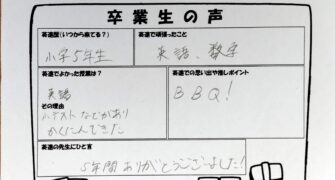 卒業生の声
英進歴(いつから来てる?)
小学5年生
英進で頑張ったこと
英語、数学
英進でよかった授業は?
英語
その理由
小テストなどがあり
かくにんできた
英進での思い出や推しポイント
BBQ!
英進の先生にひと言
5年間ありがとうございました!